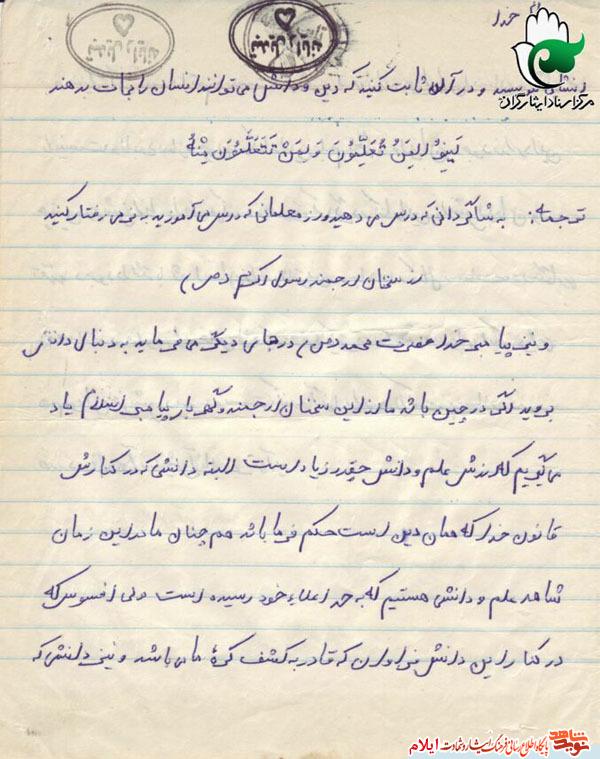 خدا
تبدیل رایانه
تبدیل رایانه
مرکز اسناد ایثارگران
بنویسید و در آن ثابت کنید که دین و دانش می‌توانند انسان را نجات بدهند
لَیِّنُوا لِمَنْ تُعَلِّمُونَ وَ لِمَنْ تَتَعَلَّمُونَ مِنْهُ
ترجمه: به شاگردانی که درس می دهید و از معلمانی که درس می آموزید به نرمی رفتار کنید
از سخنان ارجمند رسول اکرم (ص)
و نیز پیامبر خدا حضرت محمد (ص) در جای دیگر می فرماید به دنبال دانش
بروید اگر در چین باشد ما از این سخنان ارجمند و گهربار پیامبر اسلام یاد
می گیریم که ارزش علم و دانش چقدر زیاد است البته دانشی که در کنارش
قانون خدا که همان دین است حکم فرما باشد هم چنان ما در این زمان
شاهد علم و دانشی هستیم که به حد اعلاء خود رسیده است ولی افسوس که
در کنار این دانش فراوان که قادر به کشف کرهٔ ماه می باشد و نیز دانشی که
نوید شاهد
پایگاه اطلاع رسانی فرهنگ ایثار و شهادت ایلام